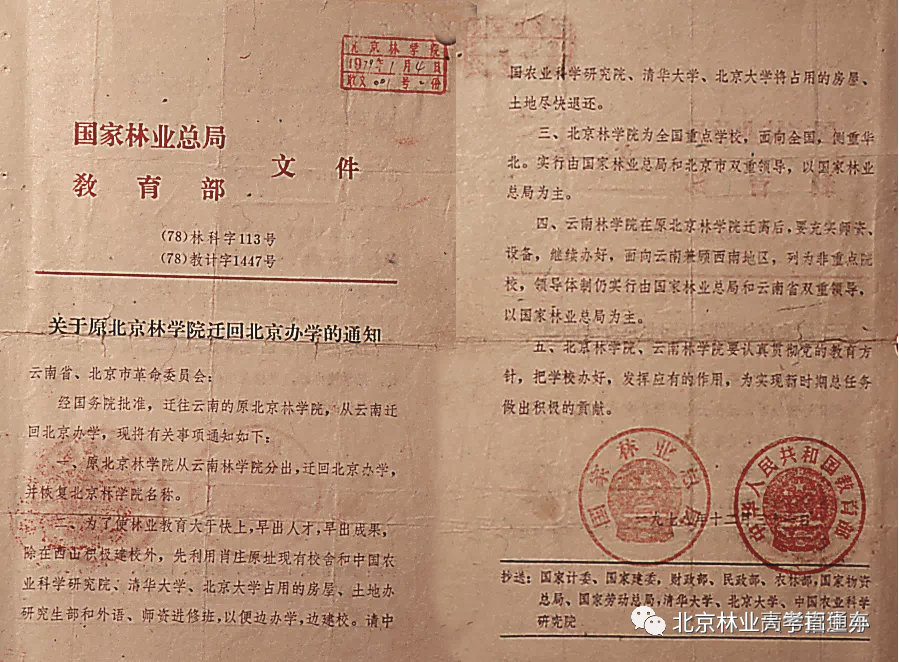 北京林学院
1979年1月4日
收文001号 份
国家林业总局
教育部
文件
(78)林科字113号
(78)教计字1447号
关于原北京林学院迁回北京办学的通知
云南省、北京市革命委员会:
经国务院批准,迁往云南的原北京林学院,从云南迁
回北京办学,现将有关事项通知如下:
一、原北京林学院从云南林学院分出,迁回北京办学,
并恢复北京林学院名称。
二、为了使林业教育大干快上,早出人才,早出成果,
除在西山积极建校外,先利用肖庄原址现有校舍和中国农
业科学研究院、清华大学、北京大学占用的房屋、土地办
研究生部和外语、师资进修班,以便边办学,边建校。请中
国农业科学研究院、清华大学、北京大学将占用的房屋、
土地尽快退还。
三、北京林学院为全国重点学校,面向全国,侧重华
北。实行由国家林业总局和北京市双重领导,以国家林业
总局为主。
四、云南林学院在原北京林学院迁离后,要充实师资、
设备,继续办好,面向云南兼顾西南地区,列为非重点院
校,领导体制仍实行由国家林业总局和云南省双重领导,
以国家林业总局为主。
五、北京林学院、云南林学院要认真贯彻党的教育方
针,把学校办好,发挥应有的作用,为实现新时期总任务
做出积极的贡献。
国家林业总局
中华人民共和国教育部
一九七八年十二月
抄送:国家计委、国家建委,财政部、民政部、农林部,国家物资
总局、国家劳动总局,清华大学、北京大学、中国农业科学
研究院
北京林业